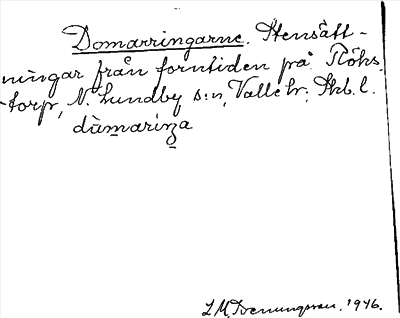 Domarringarne. Stensätt-
ningar från forntiden på Röks-
-torp, N. Lundby s:n, Valle hr; Skb. l.
dùmariŋa
1946.